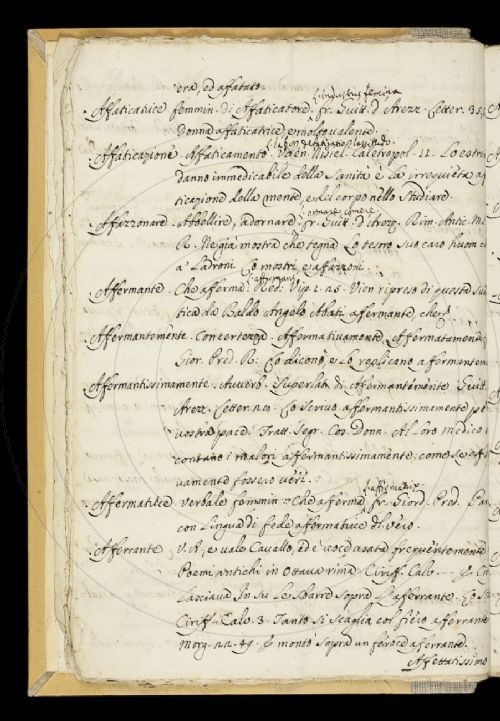 era, ed affatato.
L. industris femina
Affaticatrice femmin. di Affaticatore. fr. Guitt. d'Arezz. Letter. 35.
Donna affaticatrice, e molto valente.
L. defatigatio, lassitudo
Affaticazione. Affaticamento. Nisiel.
danno immedicabile della Sanità e la irrequieta af
ticazione della mente, e del corpo nello Studiare.
L. ornare, comere
Affazzonare. Abbellire, adornare. fr. Guitt. d'Arezz. Rim. Ant.
R. Ne già mostra che tegna Lo tesoro suo caro
a' Ladroni Lo mostri, e affazzoni.
affirmans
Affermante. Che afferma. Red. Vip. 1. 25. Vien ripreso di questa
tica da Baldo Angelo Abati affermante, che
Affermantemente. Con certezza. Affermativamente, Affermatamente
Gior. Pred. R. Lo dicono, e Lo replicano affermantem
Affermantissimamente. Avverb. Superlat. di Affermantemente. Guitt.
Arezz. Letter. 20. Lo scrivo affermantissimamente
vostra pace. Tratt. Segr. Cos. Donn. Al Loro medico
contano i affermantissimamente, come se
vamente fossero veri.
L. affirmatrix
Affermatrice verbale femmin. Che afferma. fr. Giord. Pred.
con Lingua di fede affermatrice del vero.
Afferrante V. A., e vale Cavallo, ed è voce usata frequentemente
Poemi antichi in Ottava rima. Ciriff. Calv.
Lanciava In su Le sbarre sopra L'afferrante.
Ciriff. Calv. 3. Tanto si scaglia col fiero afferrante
Morg. 22. 49. E monto sopra un feroce afferrante.
Affettatissimo